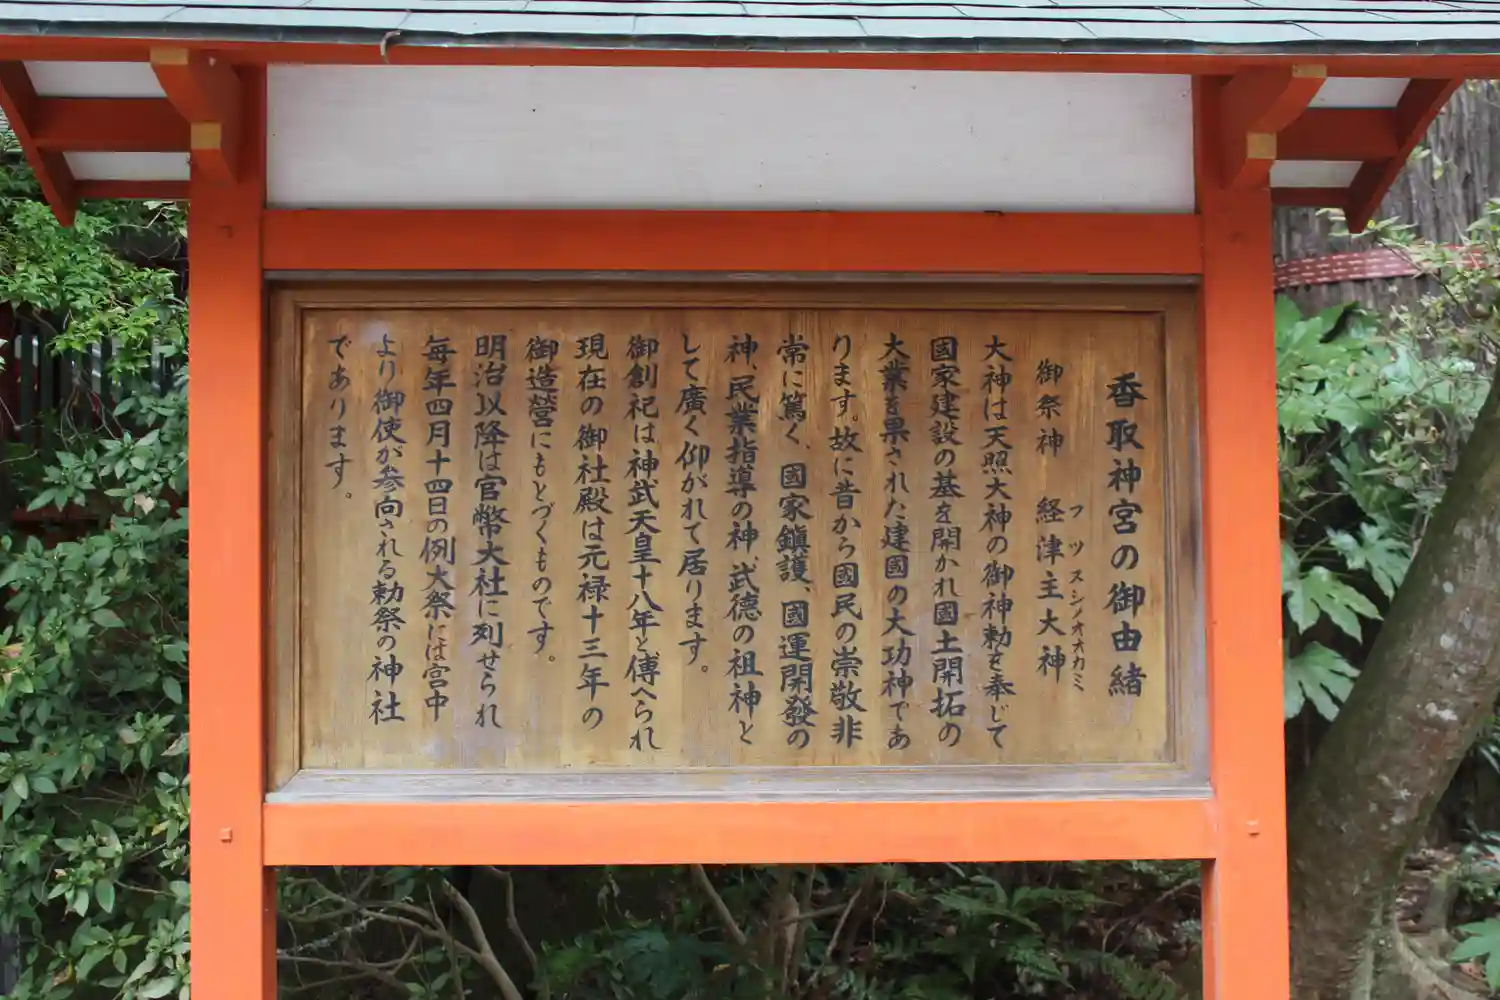 香取神宮の御由緒
御祭神　経津主大神
フツヌシノオオカミ
大神は天照大神の御神勅を奉じて
國家建設の基を開かれ國土開拓の
大業を果された建國の大功神であ
ります。故に昔から國民の崇敬非
常に篤く、國家鎭護、國運開發の
神、民業指導の神、武德の祖神と
して廣く仰がれて居ります。
御創祀は神武天皇十八年と傳へられ
現在の御社殿は元禄十三年の
御造營にもとづくものです。
明治以降は官幣大社に列せられ
毎年四月十四日の例大祭には宮中
より御使が参向される勅祭の神社
であります。